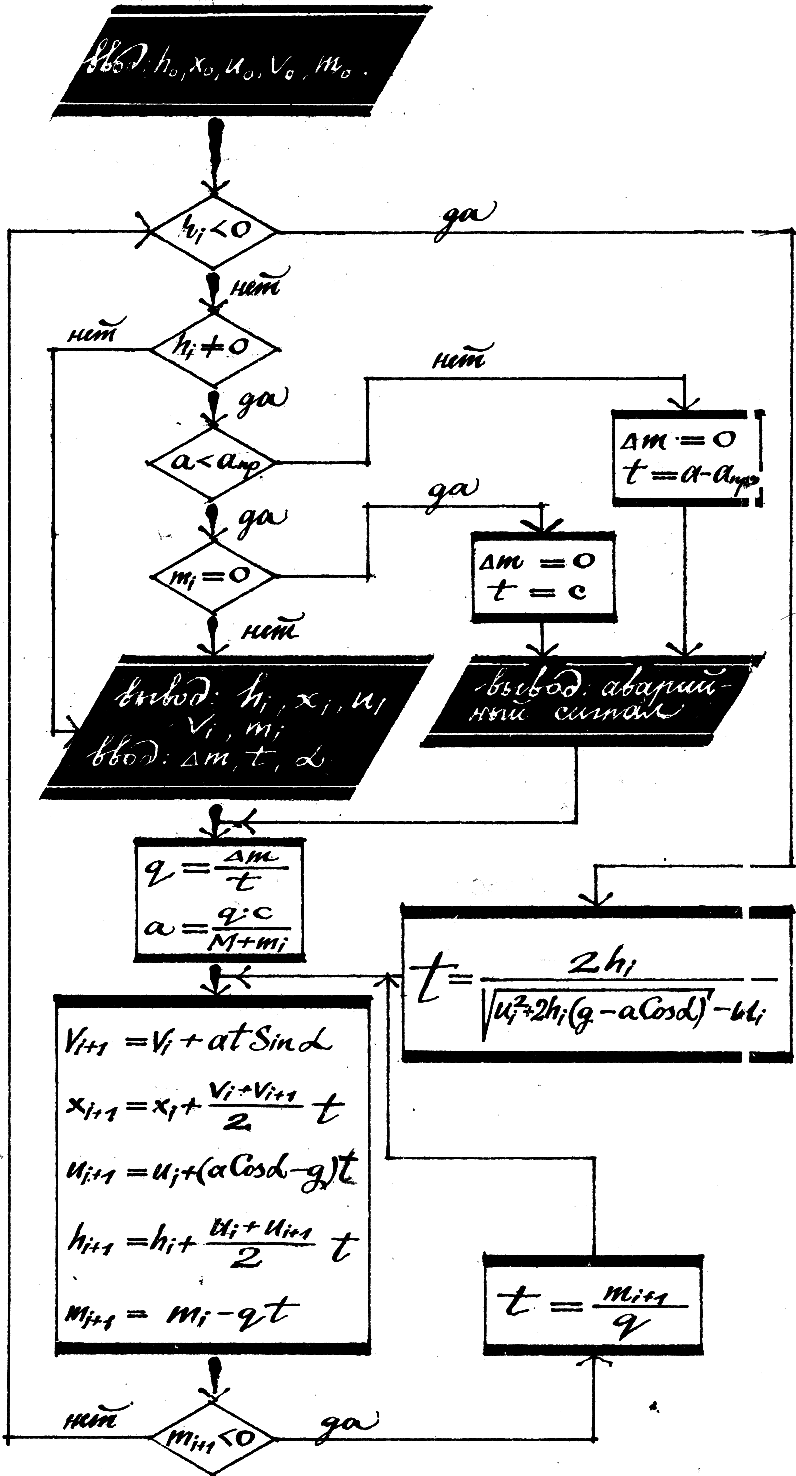 ввод: h₀, x₀, u₀, v₀, m₀.
hᵢ < 0
да
нет
hᵢ ≠ 0
нет
да
нет
a < aпр
Δm = 0
t = a - aпр
да
да
mᵢ = 0
Δm = 0
t = c
нет
вывод: hᵢ, xᵢ, uᵢ
vᵢ, mᵢ
ввод: Δm, t, α
вывод: аварий-
ный сигнал
q = Δm/t
a = q·c/(M+mᵢ)
t = 2hᵢ/(√(uᵢ²+2hᵢ(g-aCosα)) - uᵢ)
vᵢ₊₁ = vᵢ + at Sin α
xᵢ₊₁ = xᵢ + (vᵢ+vᵢ₊₁)/2 t
uᵢ₊₁ = uᵢ+(aCosα-g)t
hᵢ₊₁ = hᵢ + (uᵢ+uᵢ₊₁)/2 t
mᵢ₊₁ = mᵢ - qt
t = mᵢ₊₁/q
нет
mᵢ₊₁ < 0
да